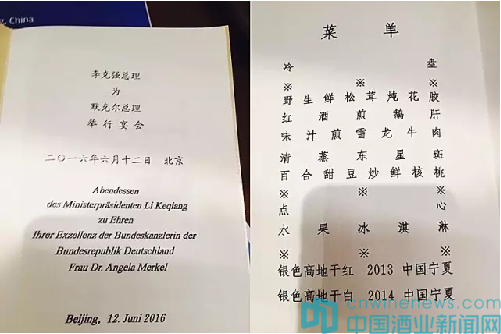 China
李克强总理
为
默克尔总理
举行宴会
二〇一六年六月十二日 北京
Abendessen
des Ministerpräsidenten Li Keqiang
zu Ehren
Ihrer Exzellenz der Bundeskanzlerin der
Bundesrepublik Deutschland
Frau Dr. Angela Merkel
Beijing, 12. Juni 2016
菜 单
冷 盘
※ ※ ※
野生鲜松茸炖花胶
红酒煎鹅肝
味汁煎雪龙牛肉
清蒸东星斑
百合甜豆炒鲜核桃
※ ※ ※
点 心
水果冰淇淋
※ ※ ※
银色高地干红 2013 中国宁夏
银色高地干白 2014 中国宁夏
www.cnwinenews.com
中国酒业新闻网